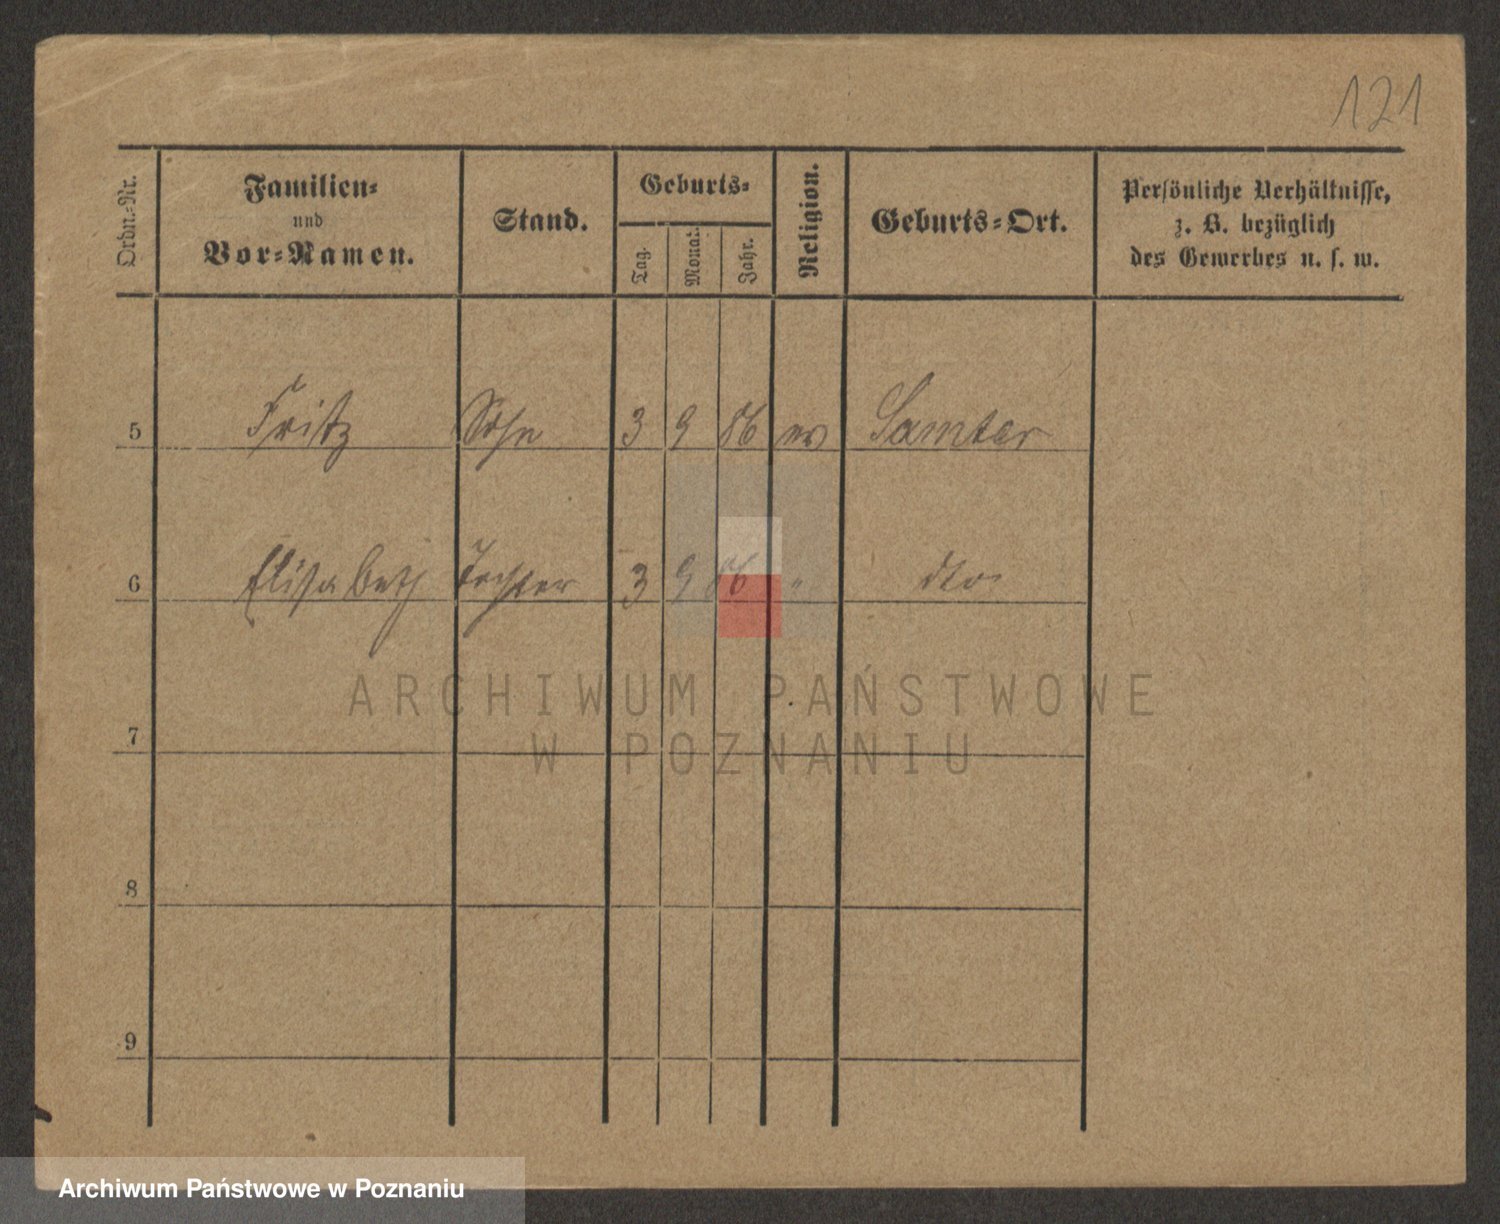 121
Ordn.-Nr.
Familien-
und
Vor-Namen.
Stand.
Geburts-
Tag.
Monat.
Jahr.
Religion.
Geburts-Ort.
Persönliche Verhältnisse,
z. B. bezüglich
des Gewerbes u. s. w.
5 Fritz Sohn 3 9 86 ev Samter
6 Elisabeth Tochter 3 9 86 " dto
7
8
9
ARCHIWUM PAŃSTWOWE
W POZNANIU
Archiwum Państwowe w Poznaniu